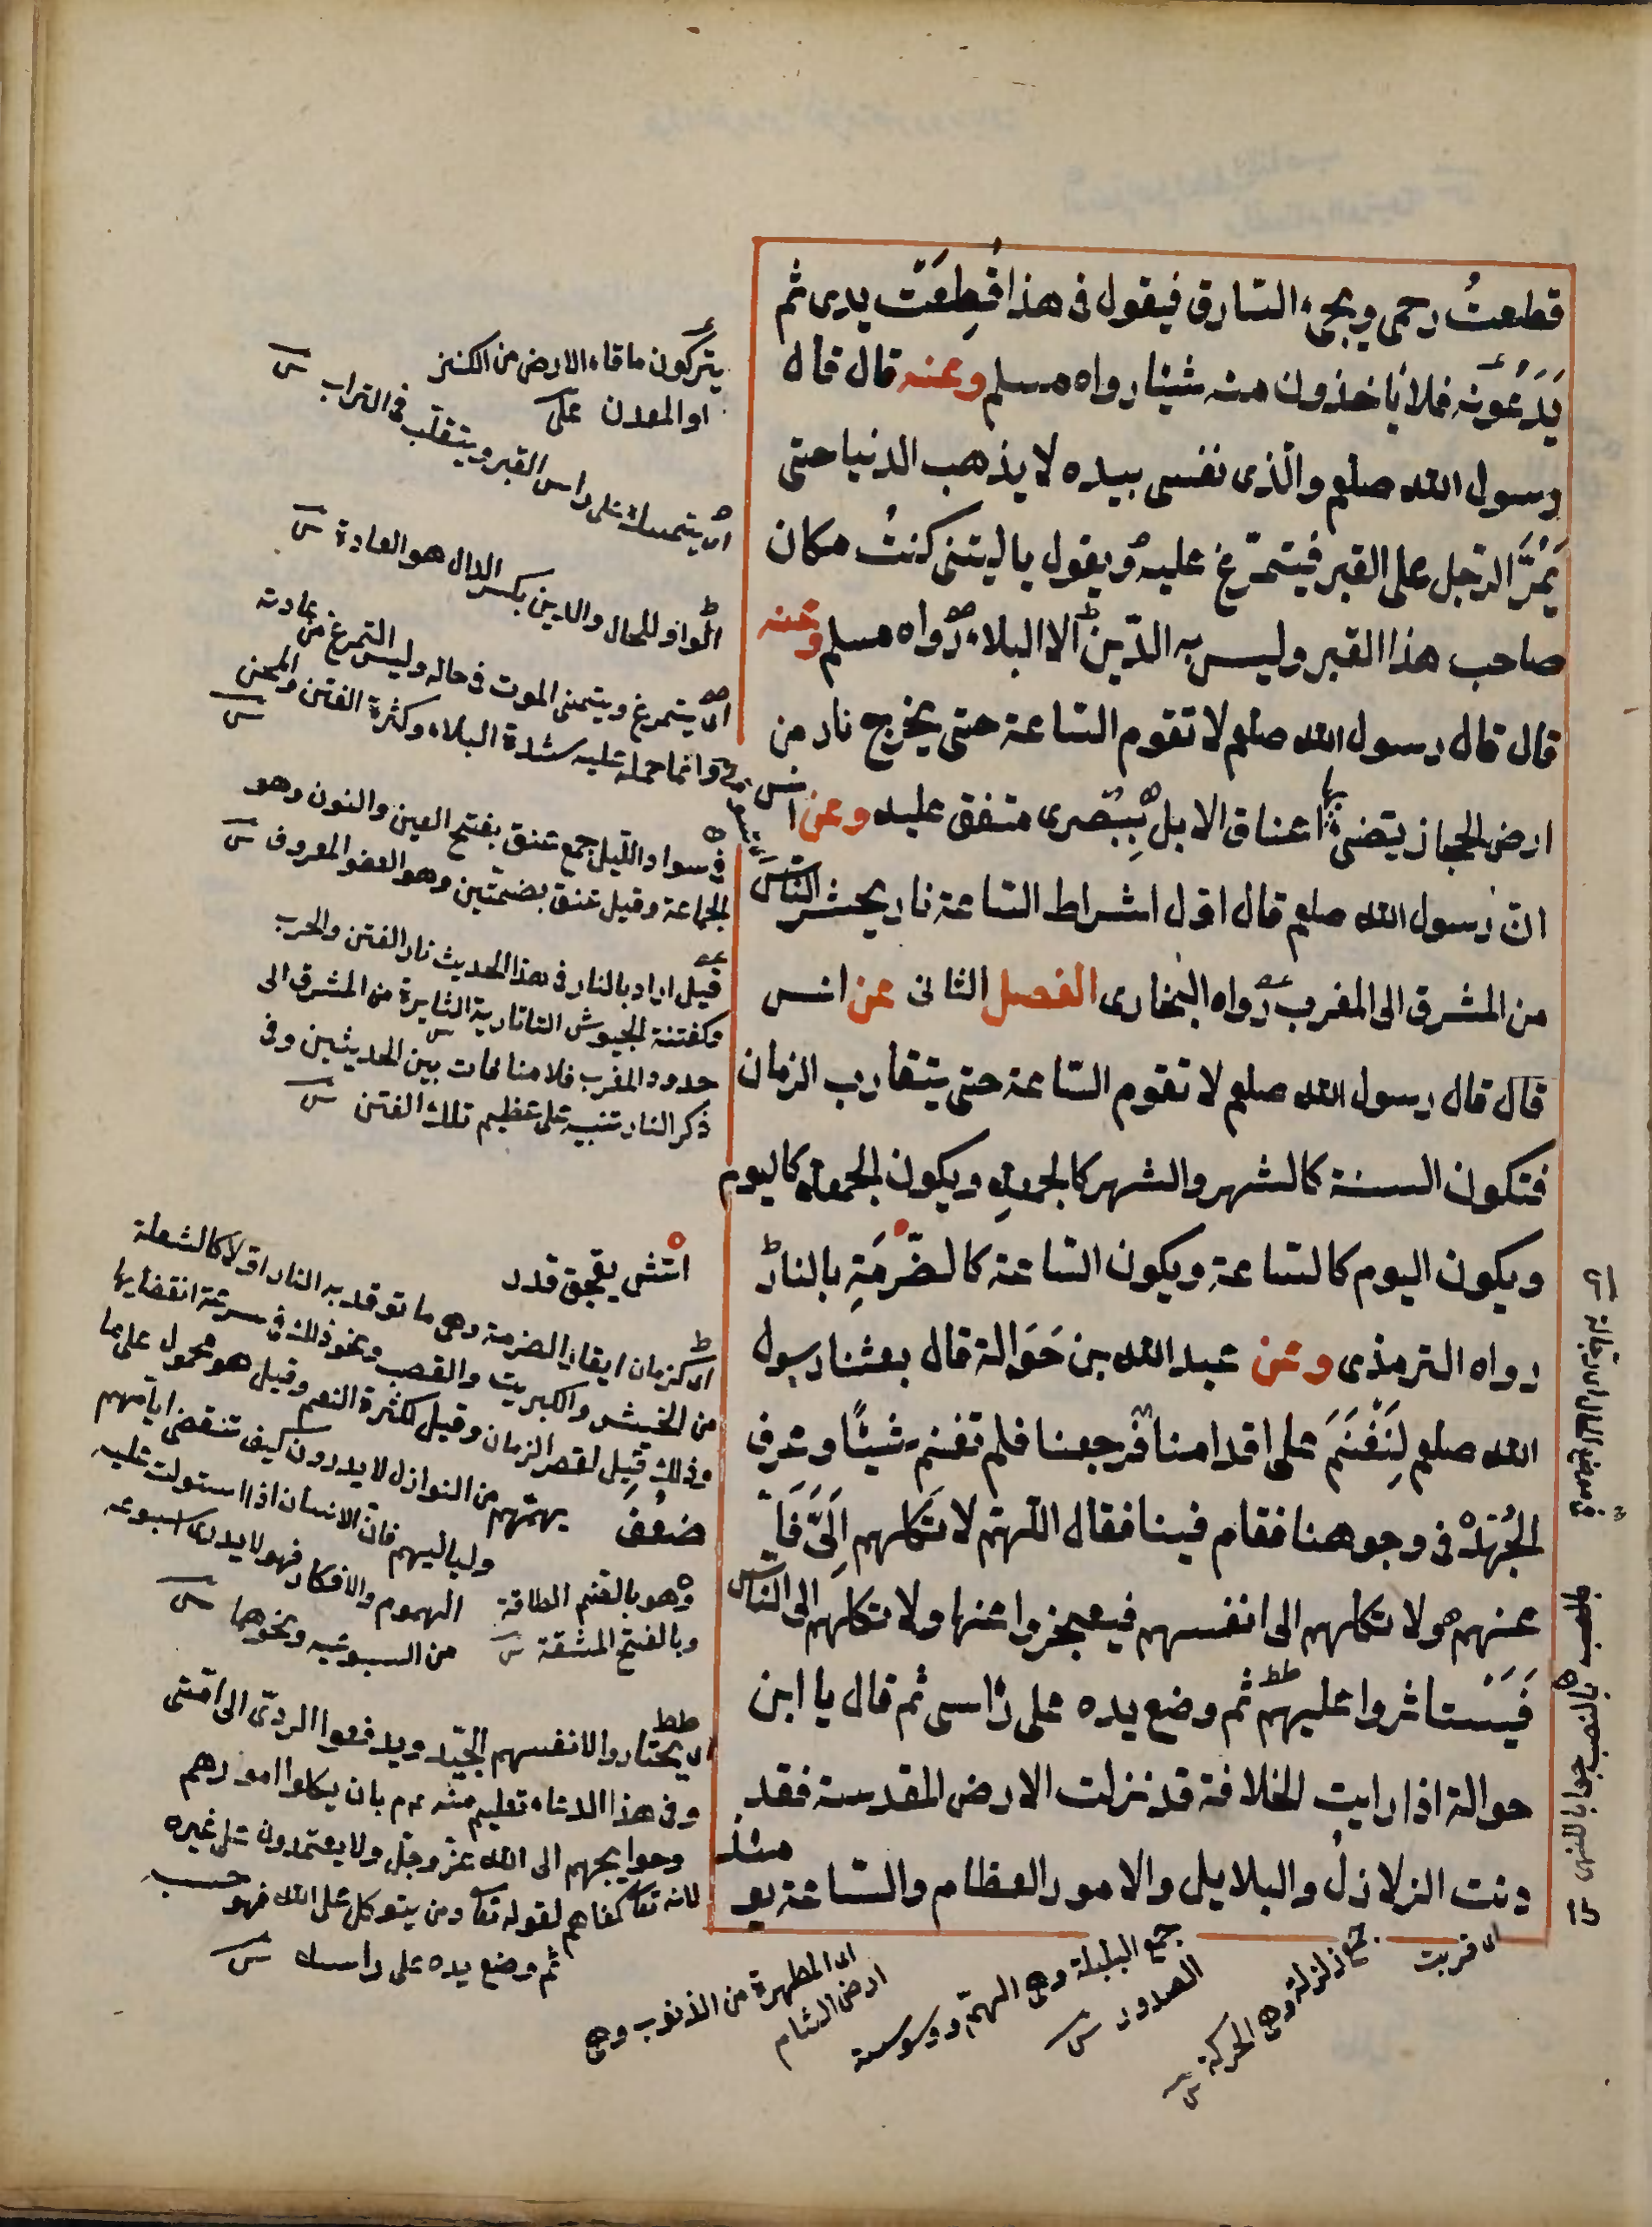 قطعتُ رحمى ويجىء السّارق فيقول فى هذا قُطِعَتْ يدى ثم
يَدَعُونَه فلا يأخذون منه شيئا رواه مسلم وعنه قال قال
رسول الله صلعم والّذى نفسى بيده لا يذهب الدنيا حتى
يَمُرَّ الرّجل على القبر فيتمرّغ عليه ويقول يا ليتنى كنتُ مكان
صاحب هذا القبر وليس به الدّين الا البلاء رواه مسلم وعنه
قال قال رسول الله صلعم لا تقوم السّاعة حتى يخرج نار من
ارض الحجاز يتضىء بها اعناق الابل بِبُصرى متفق عليه وعن انس
انّ رسول الله صلعم قال اوّل اشراط السّاعة نار يحشر النّاس
من المشرق الى المغرب رواه البخارى الفصل الثانى عن انس
قال قال رسول الله صلعم لا تقوم السّاعة حتى يتقارب الزمان
فتكون السنة كالشهر والشهر كالجمعةِ ويكون الجمعة كاليوم
ويكون اليوم كالسّاعة ويكون السّاعة كالضَّرَمَةِ بالنار
رواه الترمذى وعن عبد الله بن حَوَالة قال بعثنا رسول
الله صلعم لِنَغْنَمَ على اقدامنا فرجعنا فلم نغنم شيئًا وعرف
الجُهْدَ فى وجوهنا فقام فينا فقال اللّهمّ لا تَكلهم اِلَىَّ فَاَ
عنهم ولا تكلهم الى انفسهم فيعجزوا عنها ولا تكلهم الى النّاس
فَيَسْتاثروا عليهم ثم وضع يده على رأسى ثم قال يا ابن
حوالة اذا رايت الخلافة قد نزلت الارض المقدسة فقد
دنت الزلازلُ والبلابل والامور العظام والسّاعة يو
مئذ
يتركون ما قاء الارض من الكنز
او المعدن على
اى يتمسك على راس القبر ويتقلّب فى التراب
الواو للحال والدين بكسر الدال هو العادة
اى يتمرغ ويتمنى الموت فى حاله وليس التمرغ من عادته
وانما حمله عليه شدة البلاء وكثرة الفتن والمحن
فى سواد اللّيل جمع عنق بفتح العين والنون وهو
الجماعة وقيل عنق بضمتين وهو العضو المعروف
قيل اراد بالنار فى هذا الحديث نار الفتن والحرب
وكفتنة الجيوش التاتارية الثايرة من المشرق الى
حدود المغرب فلا منافات بين الحديثين وفى
ذكر النار تنبيه على عظيم تلك الفتن
اى كزمان ايقاد الضرمة وهى ما توقد به النار اوّلا كالشعلة
من الخشيش والكبريت والقصب ونحو ذلك فى سرعة انقضايها
وذلك قيل لقصر الزمان وقيل لكثرة النعم وقيل هو محمول على ما
يهمّهم من النوازل لا يدرون كيف تنقضى ايّامهم
ولياليهم فانّ الانسان اذا استولت عليه
الهموم والافكار فهو لا يدرى اسبوعه
من السبوعيه ونحوها
ضعُفَ
وهو بالضم الطاقة
وبالفتح المشقة
اى يختاروا لانفسهم الجيّد ويدفعوا الردىّ الى امّتى
وفى هذا الدعاء تعليم منه عم بان يكلوا امورهم
وحوايجهم الى الله عزّ وجلّ ولا يعتمدون على غيره
لانه تعا كفاهم لقوله تعا ومن يتوكل على الله فهو حسبه
ثم وضع يده على راسك
اى قربت
جمع زلزلة وهى الحركة
جمع البلبلة وهى الهمّ ووسوسة
الصدور
اى المطهرة من الذنوب وهى
ارض الشام
بالنصب جوابا للنهى